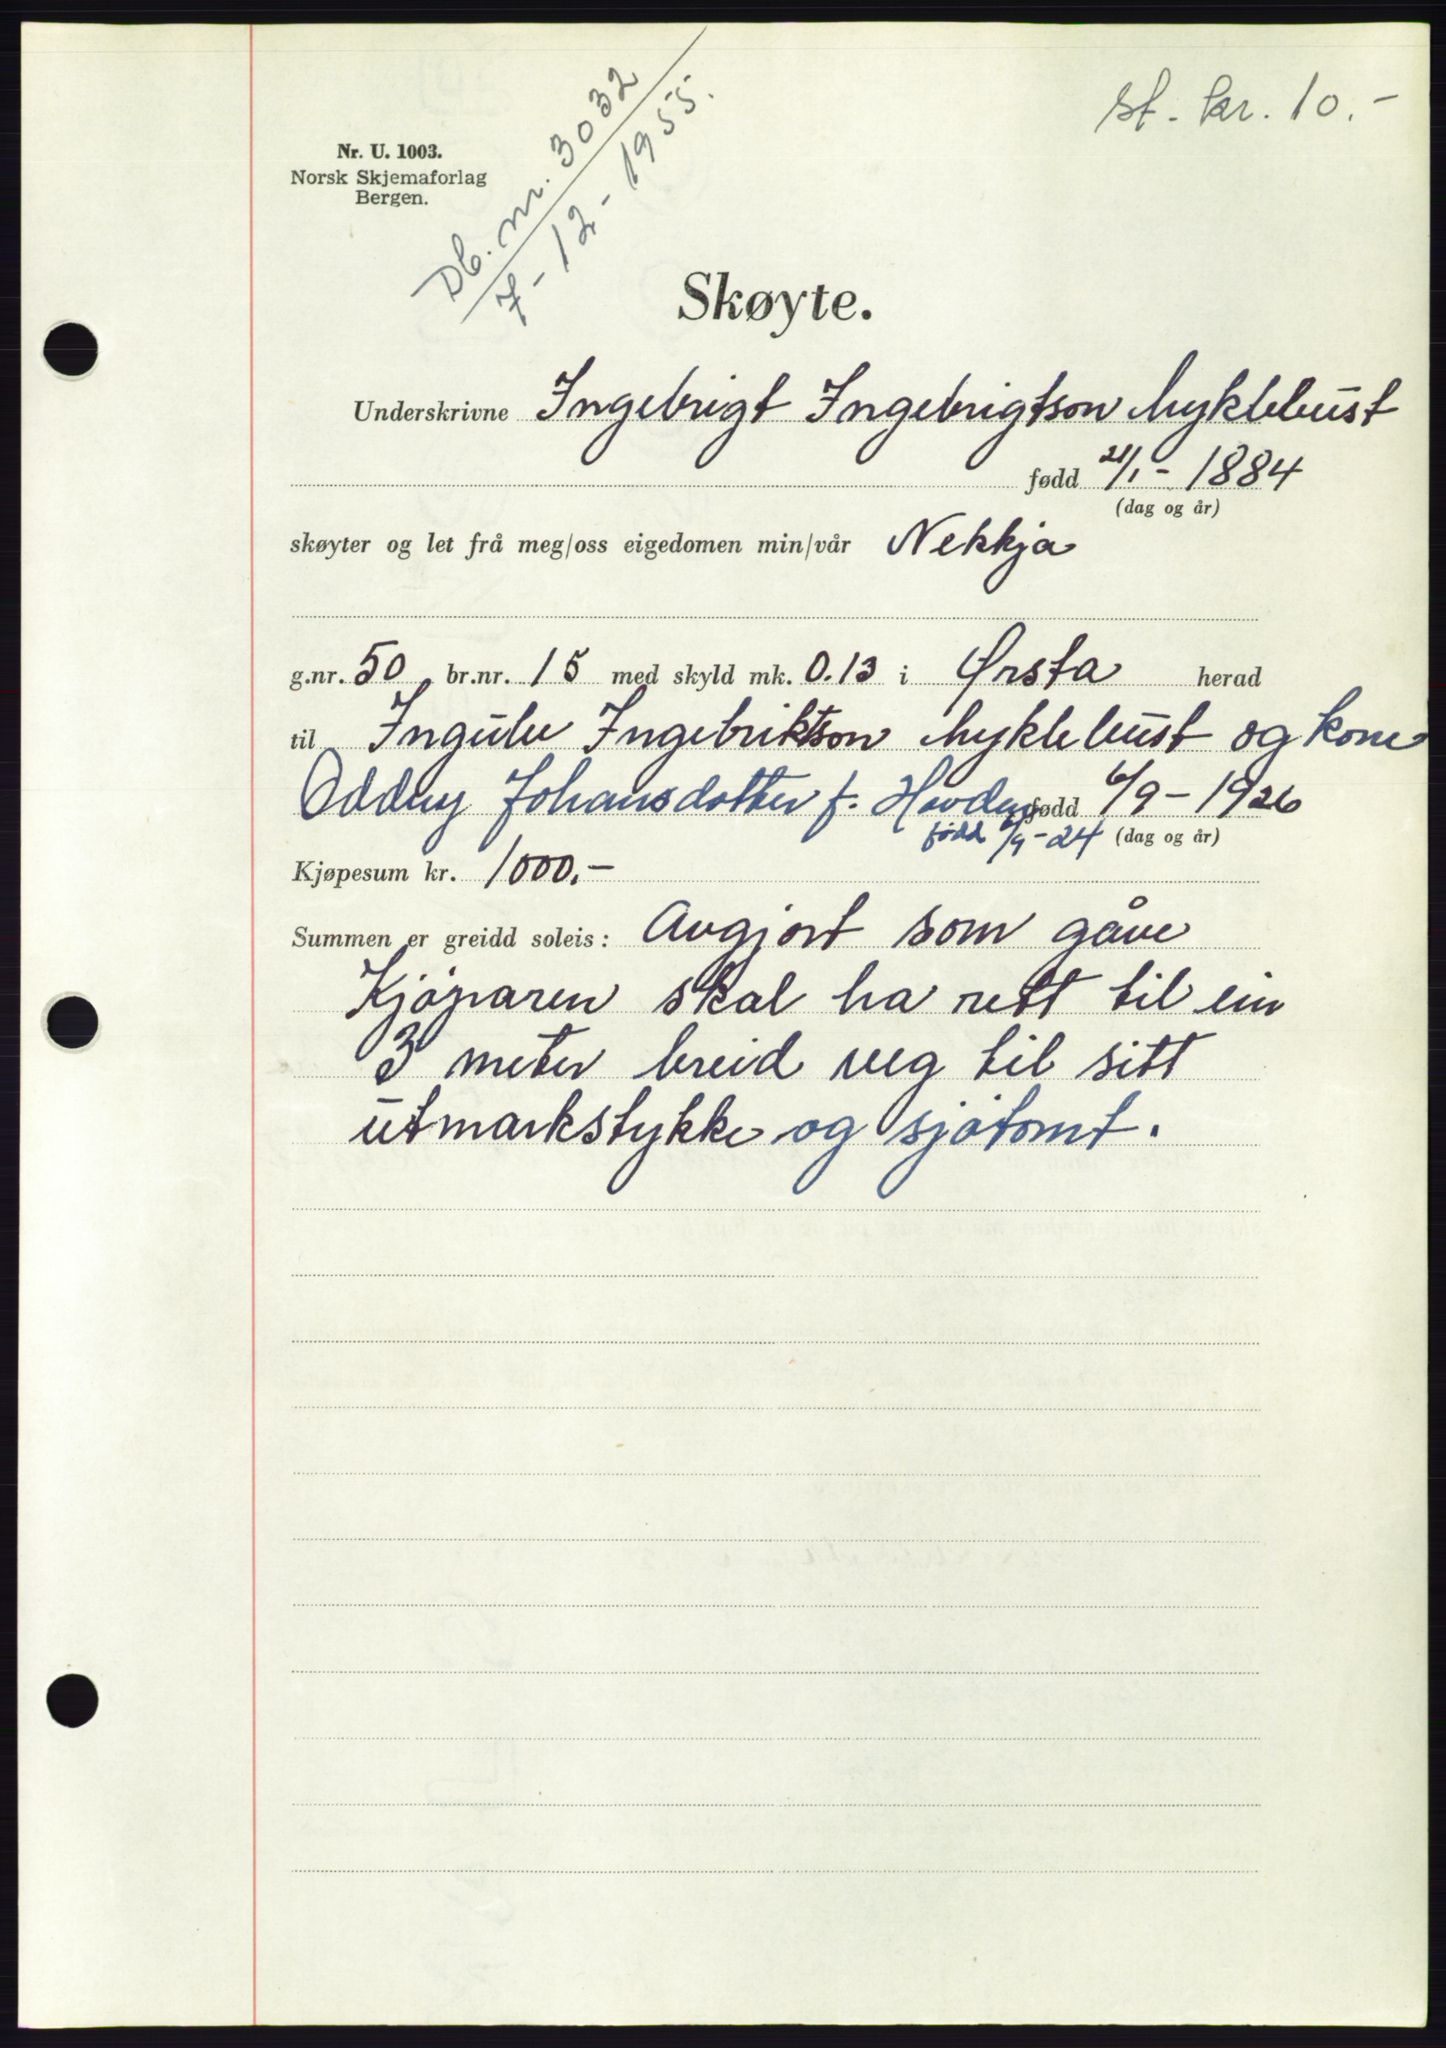 st. kr. 10.-
Db. nr. 3032
7-12-1955.
Nr. U. 1003.
Norsk Skjemaforlag
Bergen.
Skøyte.
Underskrivne Ingebrigt Ingebrigtson Myklebust
fødd 21/1- 1884
(dag og år)
skøyter og let frå meg/oss eigedomen min/vår Nekkja
g.nr. 50 br.nr. 15 med skyld mk. 0.13 i Ørsta herad
til Ingulv Ingebriktson Myklebust og kone
Oddny Johansdotter f. Hovden fødd 6/9-1926
fødd 6/9-24 (dag og år)
Kjøpesum kr. 1000.-
Summen er greidd soleis: Avgjort som gåve
Kjøparen skal ha rett til ein
3 meter breid veg til sitt
utmarkstykke og sjøtomt.